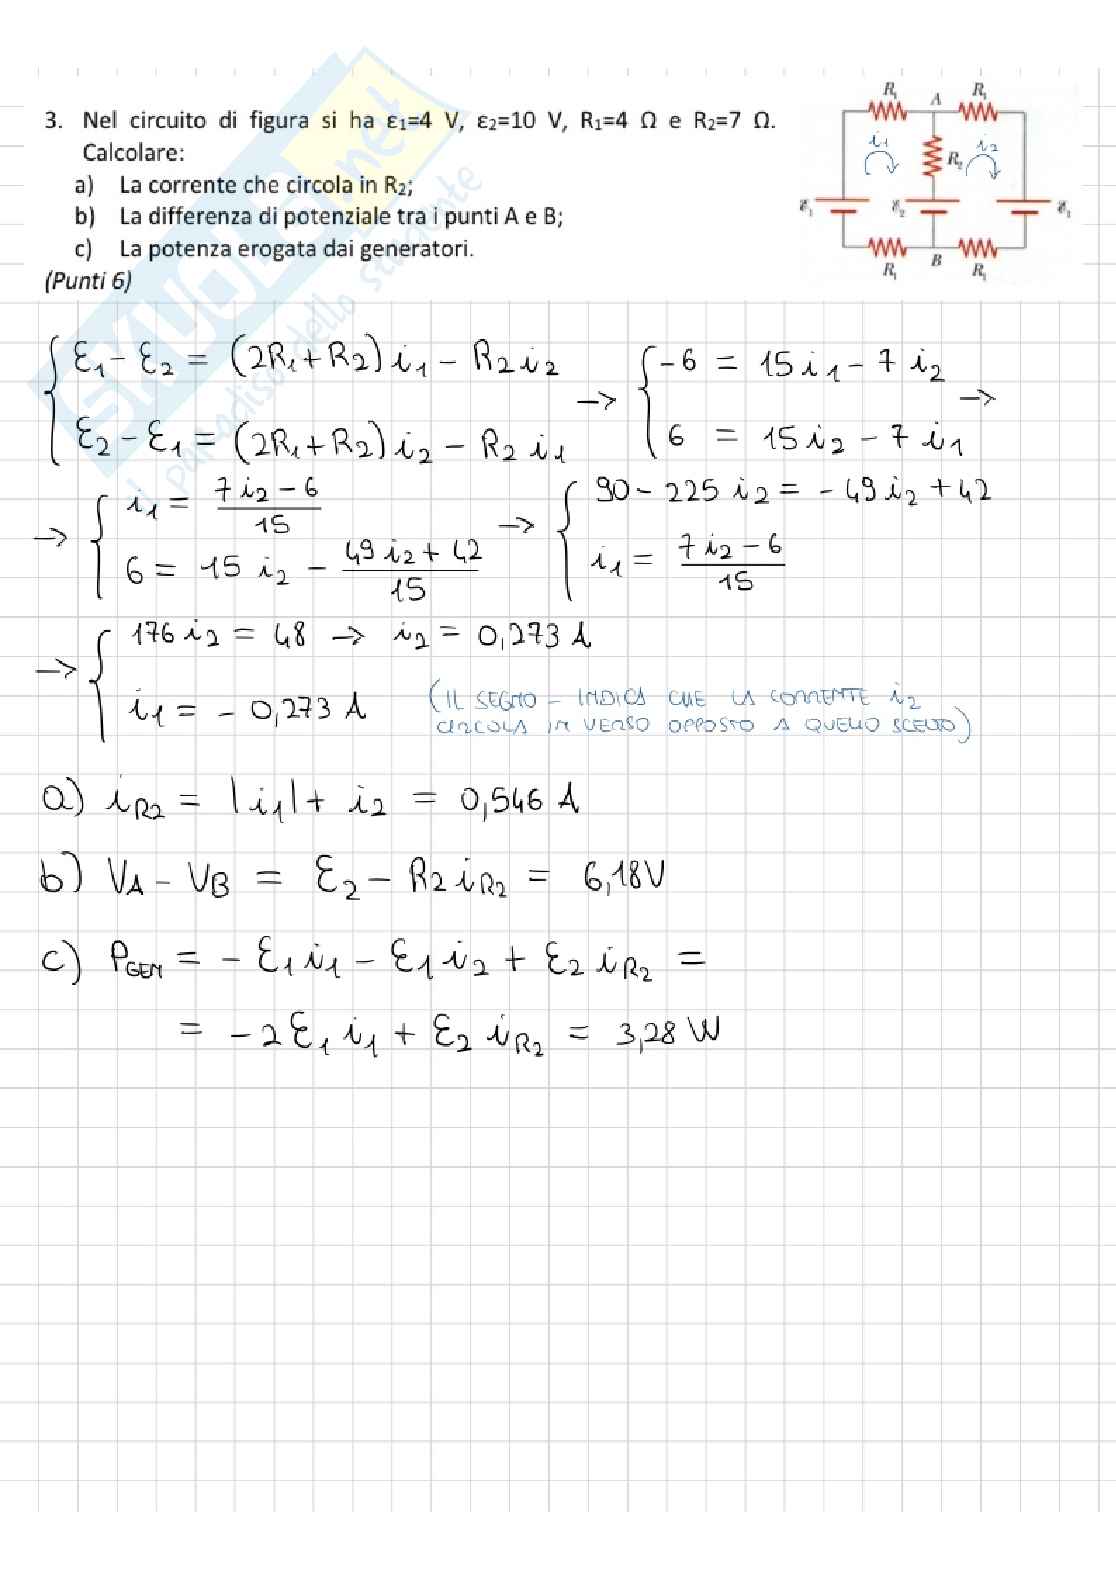 3. Nel circuito di figura si ha ε₁=4 V, ε₂=10 V, R₁=4 Ω e R₂=7 Ω.
Calcolare:
a) La corrente che circola in R₂;
b) La differenza di potenziale tra i punti A e B;
c) La potenza erogata dai generatori.
(Punti 6)
R₁ A R₁
i₁ R₂ i₂
ℰ₁ ℰ₂ ℰ₁
R₁ B R₁
SKUOLA.net
il paradiso dello studente
{ ℰ₁ - ℰ₂ = (2R₁+R₂) i₁ - R₂ i₂ → { -6 = 15 i₁ - 7 i₂ →
ℰ₂ - ℰ₁ = (2R₁+R₂) i₂ - R₂ i₁ 6 = 15 i₂ - 7 i₁
→ { i₁ = (7 i₂ - 6)/15 → { 90 - 225 i₂ = - 49 i₂ + 42
6 = 15 i₂ - (49 i₂ + 42)/15 i₁ = (7 i₂ - 6)/15
→ { 176 i₂ = 48 → i₂ = 0,273 A
i₁ = - 0,273 A (IL SEGNO - INDICA CHE LA CORRENTE i₂
CIRCOLA IN VERSO OPPOSTO A QUELLO SCELTO)
a) i_R2 = |i₁| + i₂ = 0,546 A
b) V_A - V_B = ℰ₂ - R₂ i_R2 = 6,18 V
c) P_GEN = - ℰ₁ i₁ - ℰ₁ i₂ + ℰ₂ i_R2 =
= - 2 ℰ₁ i₁ + ℰ₂ i_R2 = 3,28 W